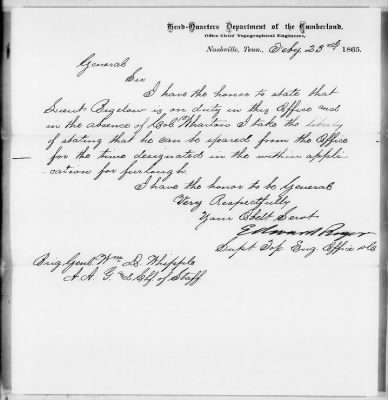 Head-Quarters Department of the Cumberland,
Office Chief Topographical Engineers,
Nashville, Tenn., Feby 25th 1865.
General
Sir
I have the honor to state that
Lieut Bigelow is on duty in this Office and
in the absence of Col Wharton I take the liberty
of stating that he can be spared from the Office
for the time designated in the within appli-
cation for furlough.
I have the honor to be General
Very Respectfully
Your Obdt Servt
Edward
Supt Top Eng Office
Brig Genl Wm D. Whipple
A. A. G. & Chf. of Staff